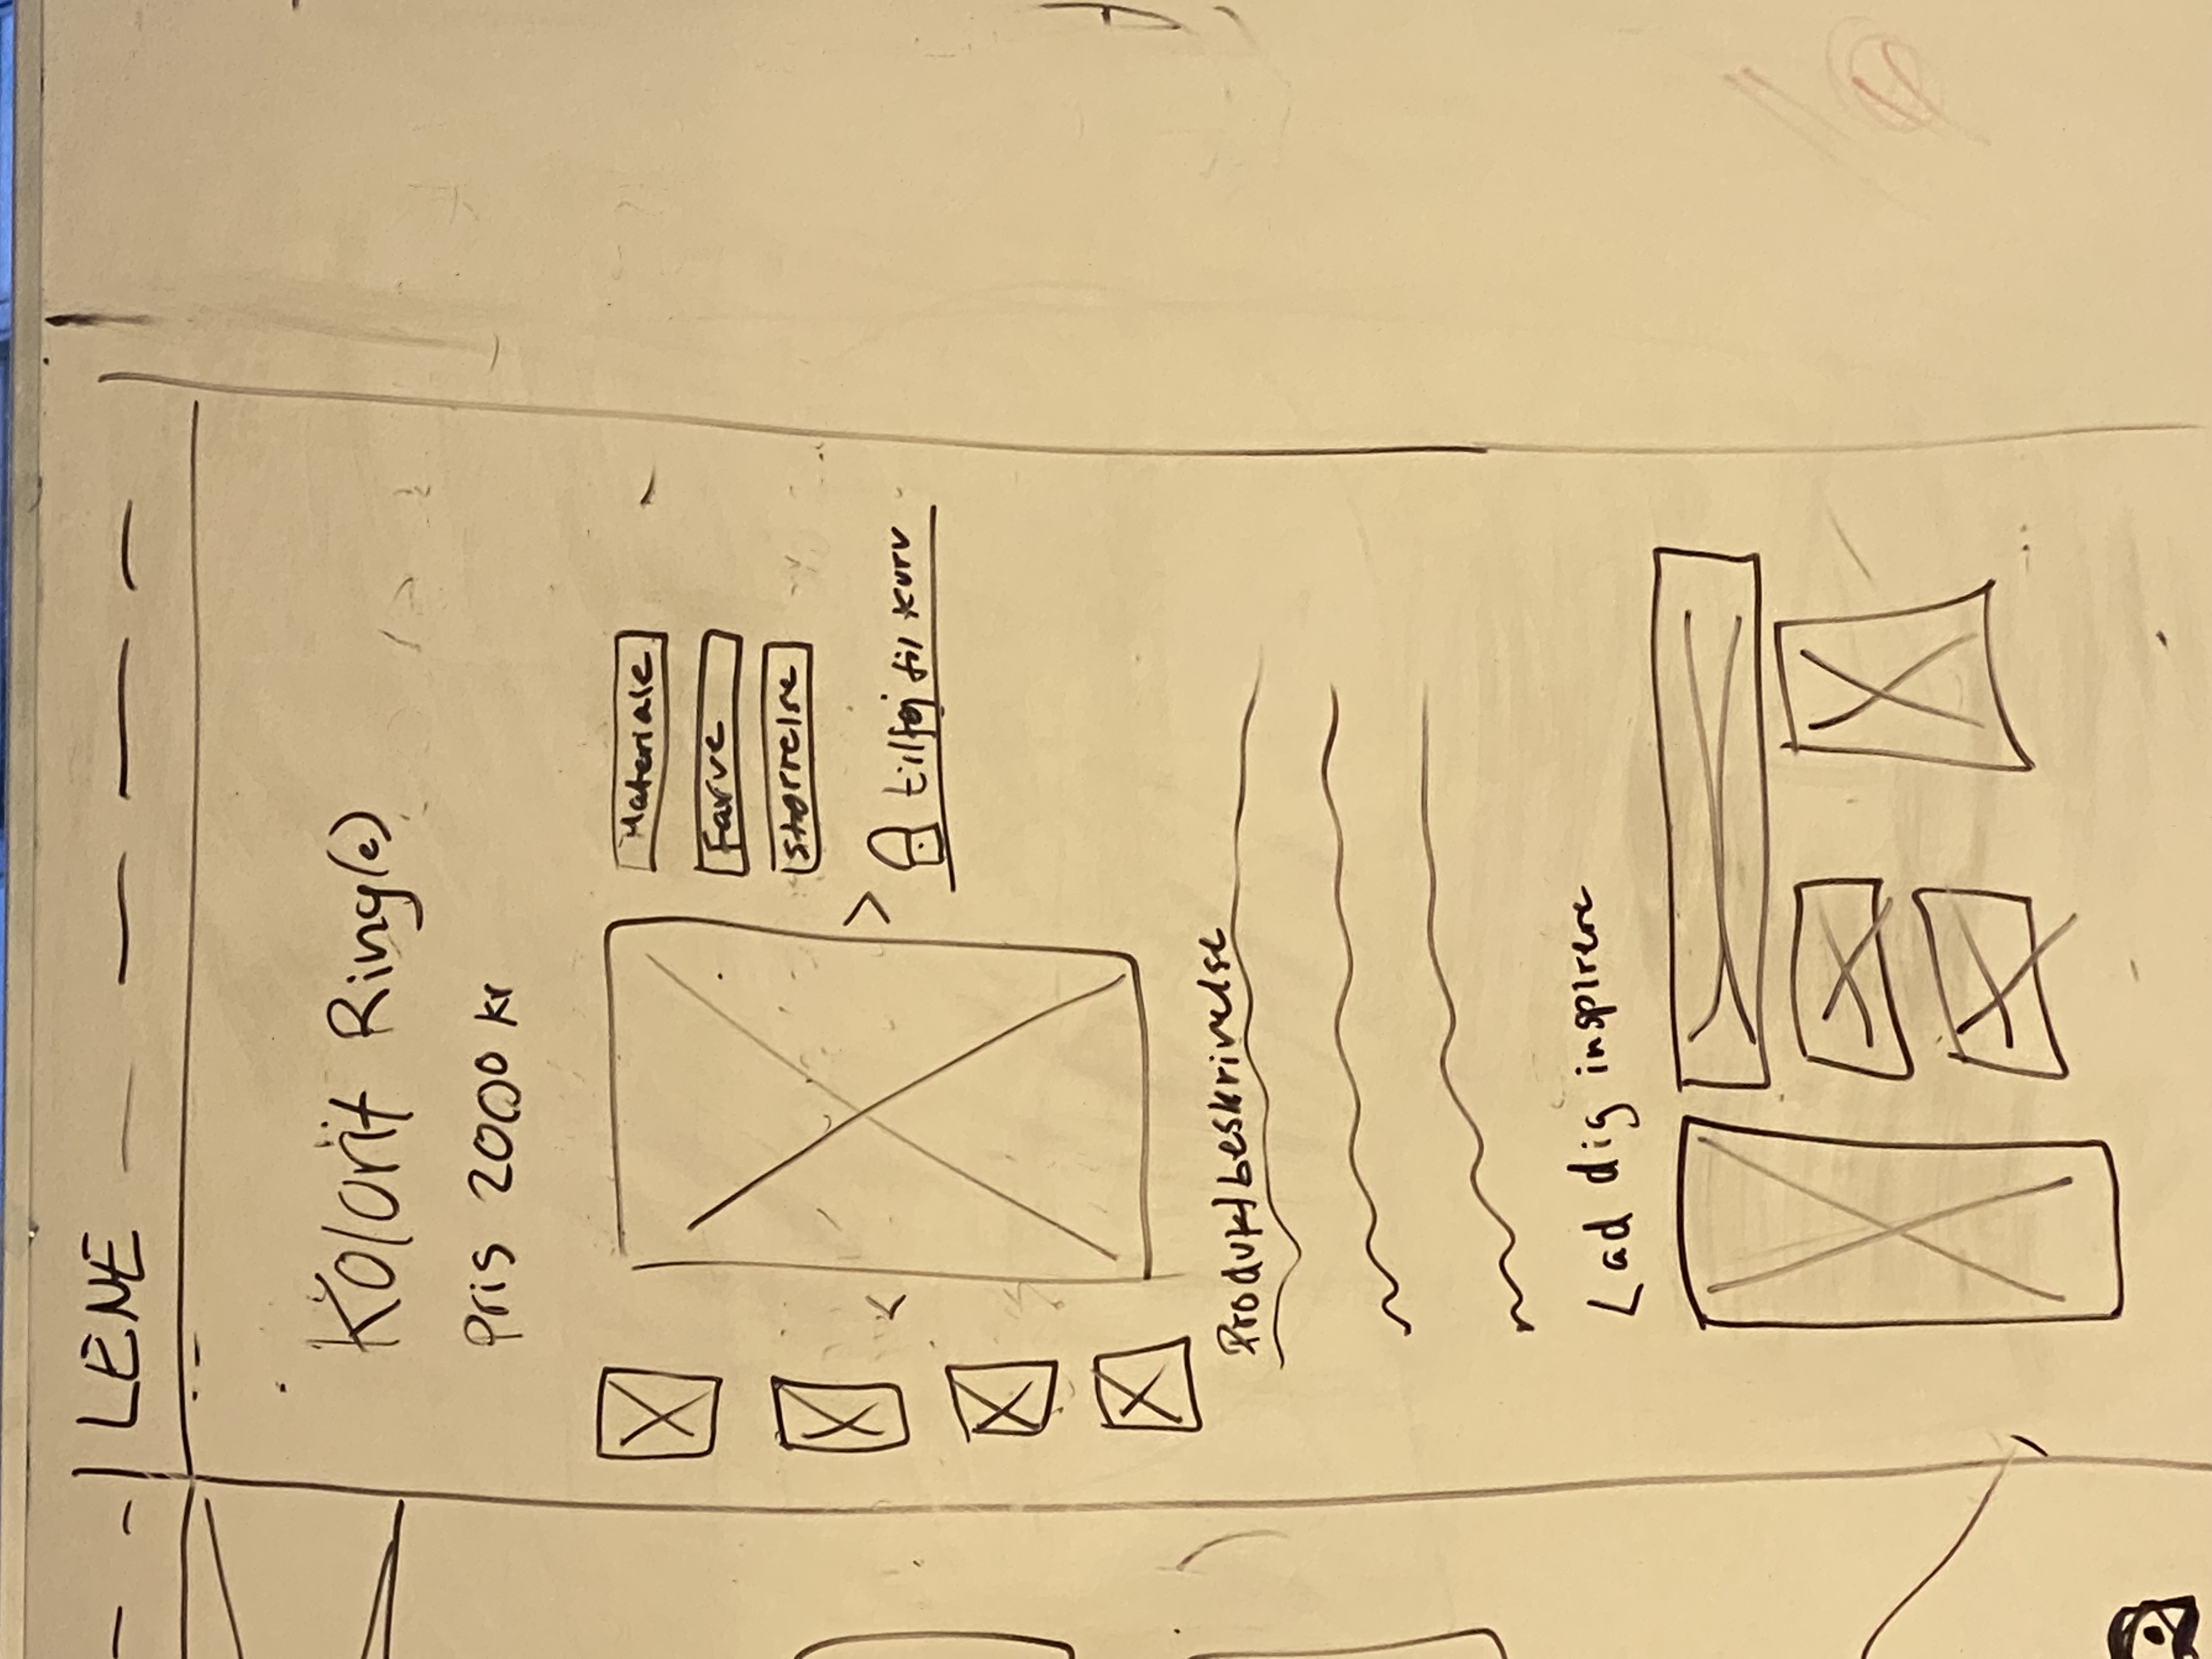 LENE
Kolorit Ring(e)
Pris 2000 kr
Materiale
Farve
størrelse
tilføj til kurv
Produktbeskrivelse
Lad dig inspirere